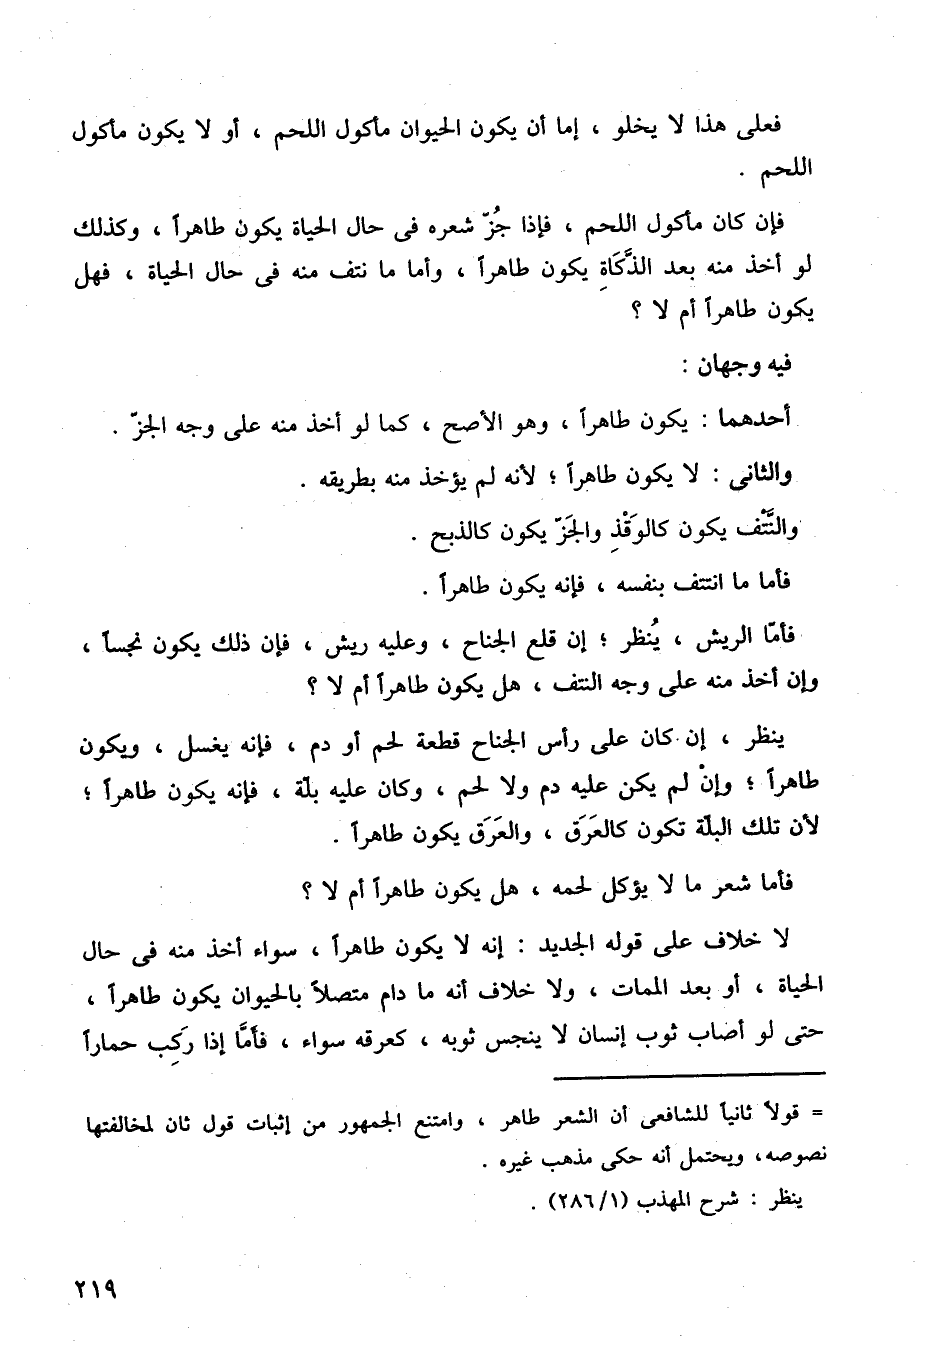 فعلى هذا لا يخلو ، إما أن يكون الحيوان مأكول اللحم ، أو لا يكون مأكول
اللحم .
فإن كان مأكول اللحم ، فإذا جُزّ شعره فى حال الحياة يكون طاهراً ، وكذلك
لو أخذ منه بعد الذَّكَاةِ يكون طاهراً ، وأما ما نتف منه فى حال الحياة ، فهل
يكون طاهراً أم لا ؟
فيه وجهان :
أحدهما : يكون طاهراً ، وهو الأصح ، كما لو أخذ منه على وجه الجزّ .
والثانى : لا يكون طاهراً ؛ لأنه لم يؤخذ منه بطريقه .
والنَّتْف يكون كالوَقْذِ والجَزّ يكون كالذبح .
فأما ما انتتف بنفسه ، فإنه يكون طاهراً .
فأمّا الريش ، يُنظر ؛ إن قلع الجناح ، وعليه ريش ، فإن ذلك يكون نجساً ،
وإن أخذ منه على وجه النتف ، هل يكون طاهراً أم لا ؟
ينظر ، إن كان على رأس الجناح قطعة لحم أو دم ، فإنه يغسل ، ويكون
طاهراً ؛ وإنْ لم يكن عليه دم ولا لحم ، وكان عليه بلّة ، فإنه يكون طاهراً ؛
لأن تلك البلّة تكون كالعَرَق ، والعَرَق يكون طاهراً .
فأما شعر ما لا يؤكل لحمه ، هل يكون طاهراً أم لا ؟
لا خلاف على قوله الجديد : إنه لا يكون طاهراً ، سواء أخذ منه فى حال
الحياة ، أو بعد الممات ، ولا خلاف أنه ما دام متصلاً بالحيوان يكون طاهراً ،
حتى لو أصاب ثوب إنسان لا ينجس ثوبه ، كعرقه سواء ، فأمَّا إذا ركِب حماراً
= قولاً ثانياً للشافعى أن الشعر طاهر ، وامتنع الجمهور من إثبات قول ثان لمخالفتها
نصوصه، ويحتمل أنه حكى مذهب غيره .
ينظر : شرح المهذب (١/ ٢٨٦) .
٢١٩